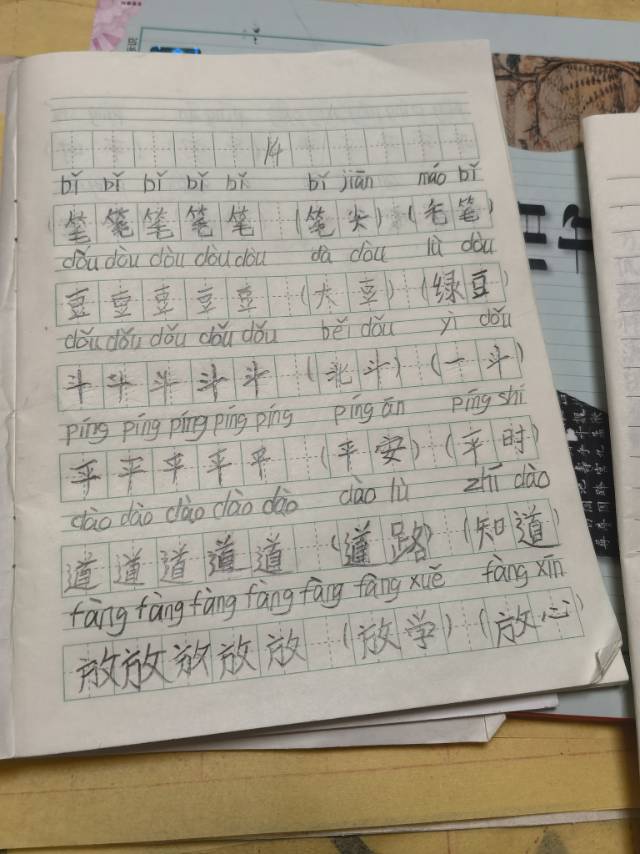 14
bǐ bǐ bǐ bǐ bǐ bǐ jiān máo bǐ
笔 笔 笔 笔 笔 (笔 尖) (毛 笔)
dòu dòu dòu dòu dòu dà dòu lǜ dòu
豆 豆 豆 豆 豆 (大 豆) (绿 豆)
dǒu dǒu dǒu dǒu dǒu běi dǒu yì dǒu
斗 斗 斗 斗 斗 (北 斗) (一 斗)
píng píng píng píng píng píng ān píng shí
平 平 平 平 平 (平 安) (平 时)
dào dào dào dào dào dào lù zhī dào
道 道 道 道 道 (道 路) (知 道)
fàng fàng fàng fàng fàng fàng xuě fàng xīn
放 放 放 放 放 (放 学) (放 心)